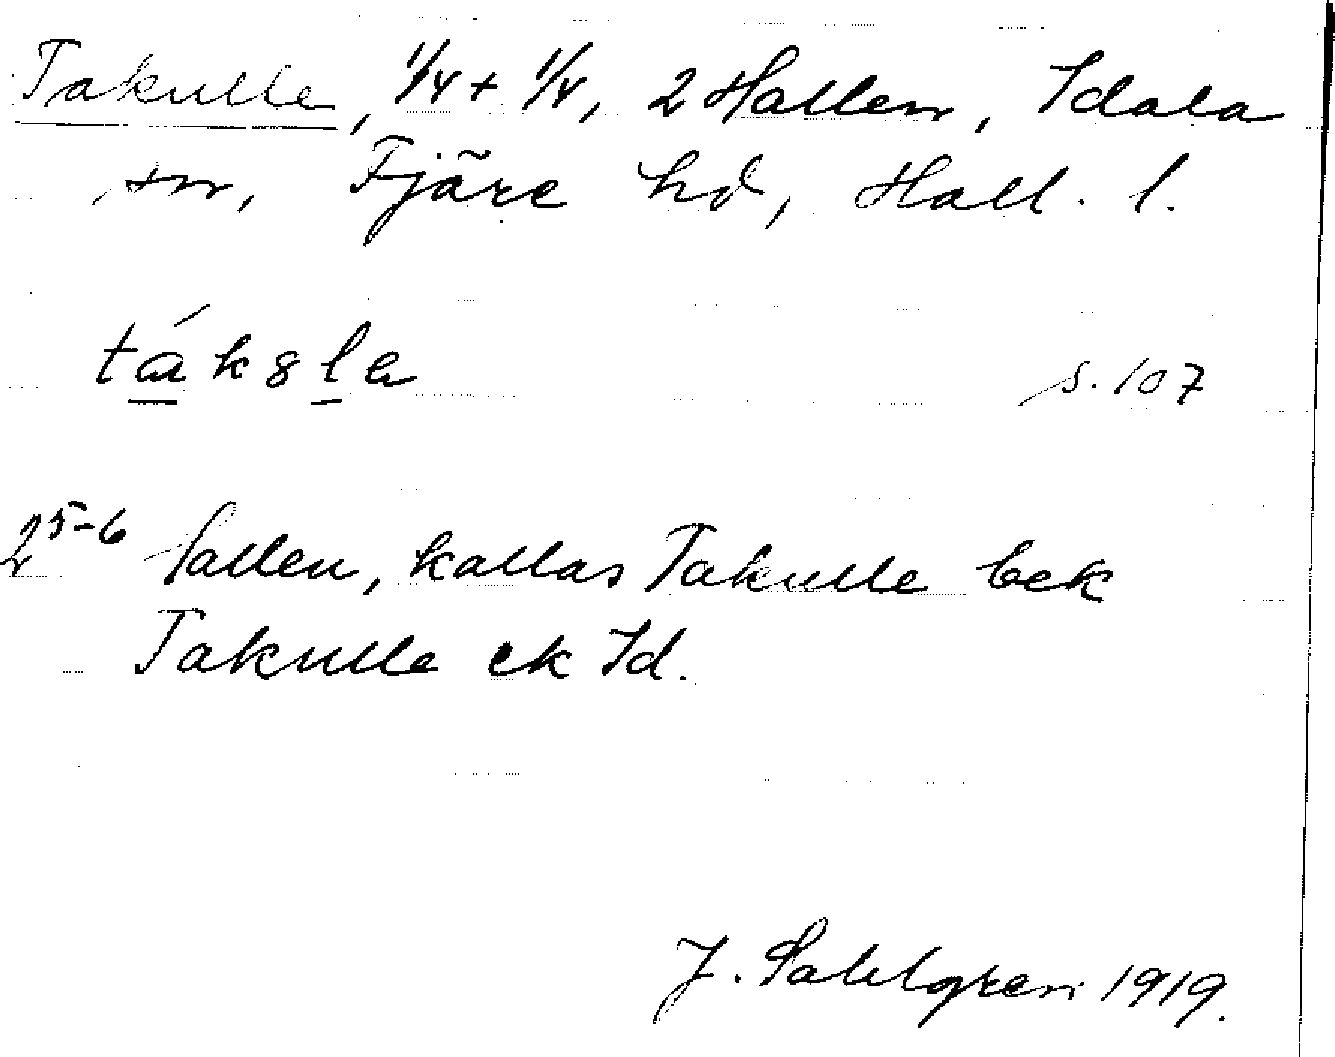 Takulle, 1/4 + 1/4, 2 Hallen, Idala
sn, Fjäre hd, Hall. l.
tákslа s. 107
2 5-6 Hallen, kallas Takulle bek
Takulle ek Id.
J. Sahlgren 1919.